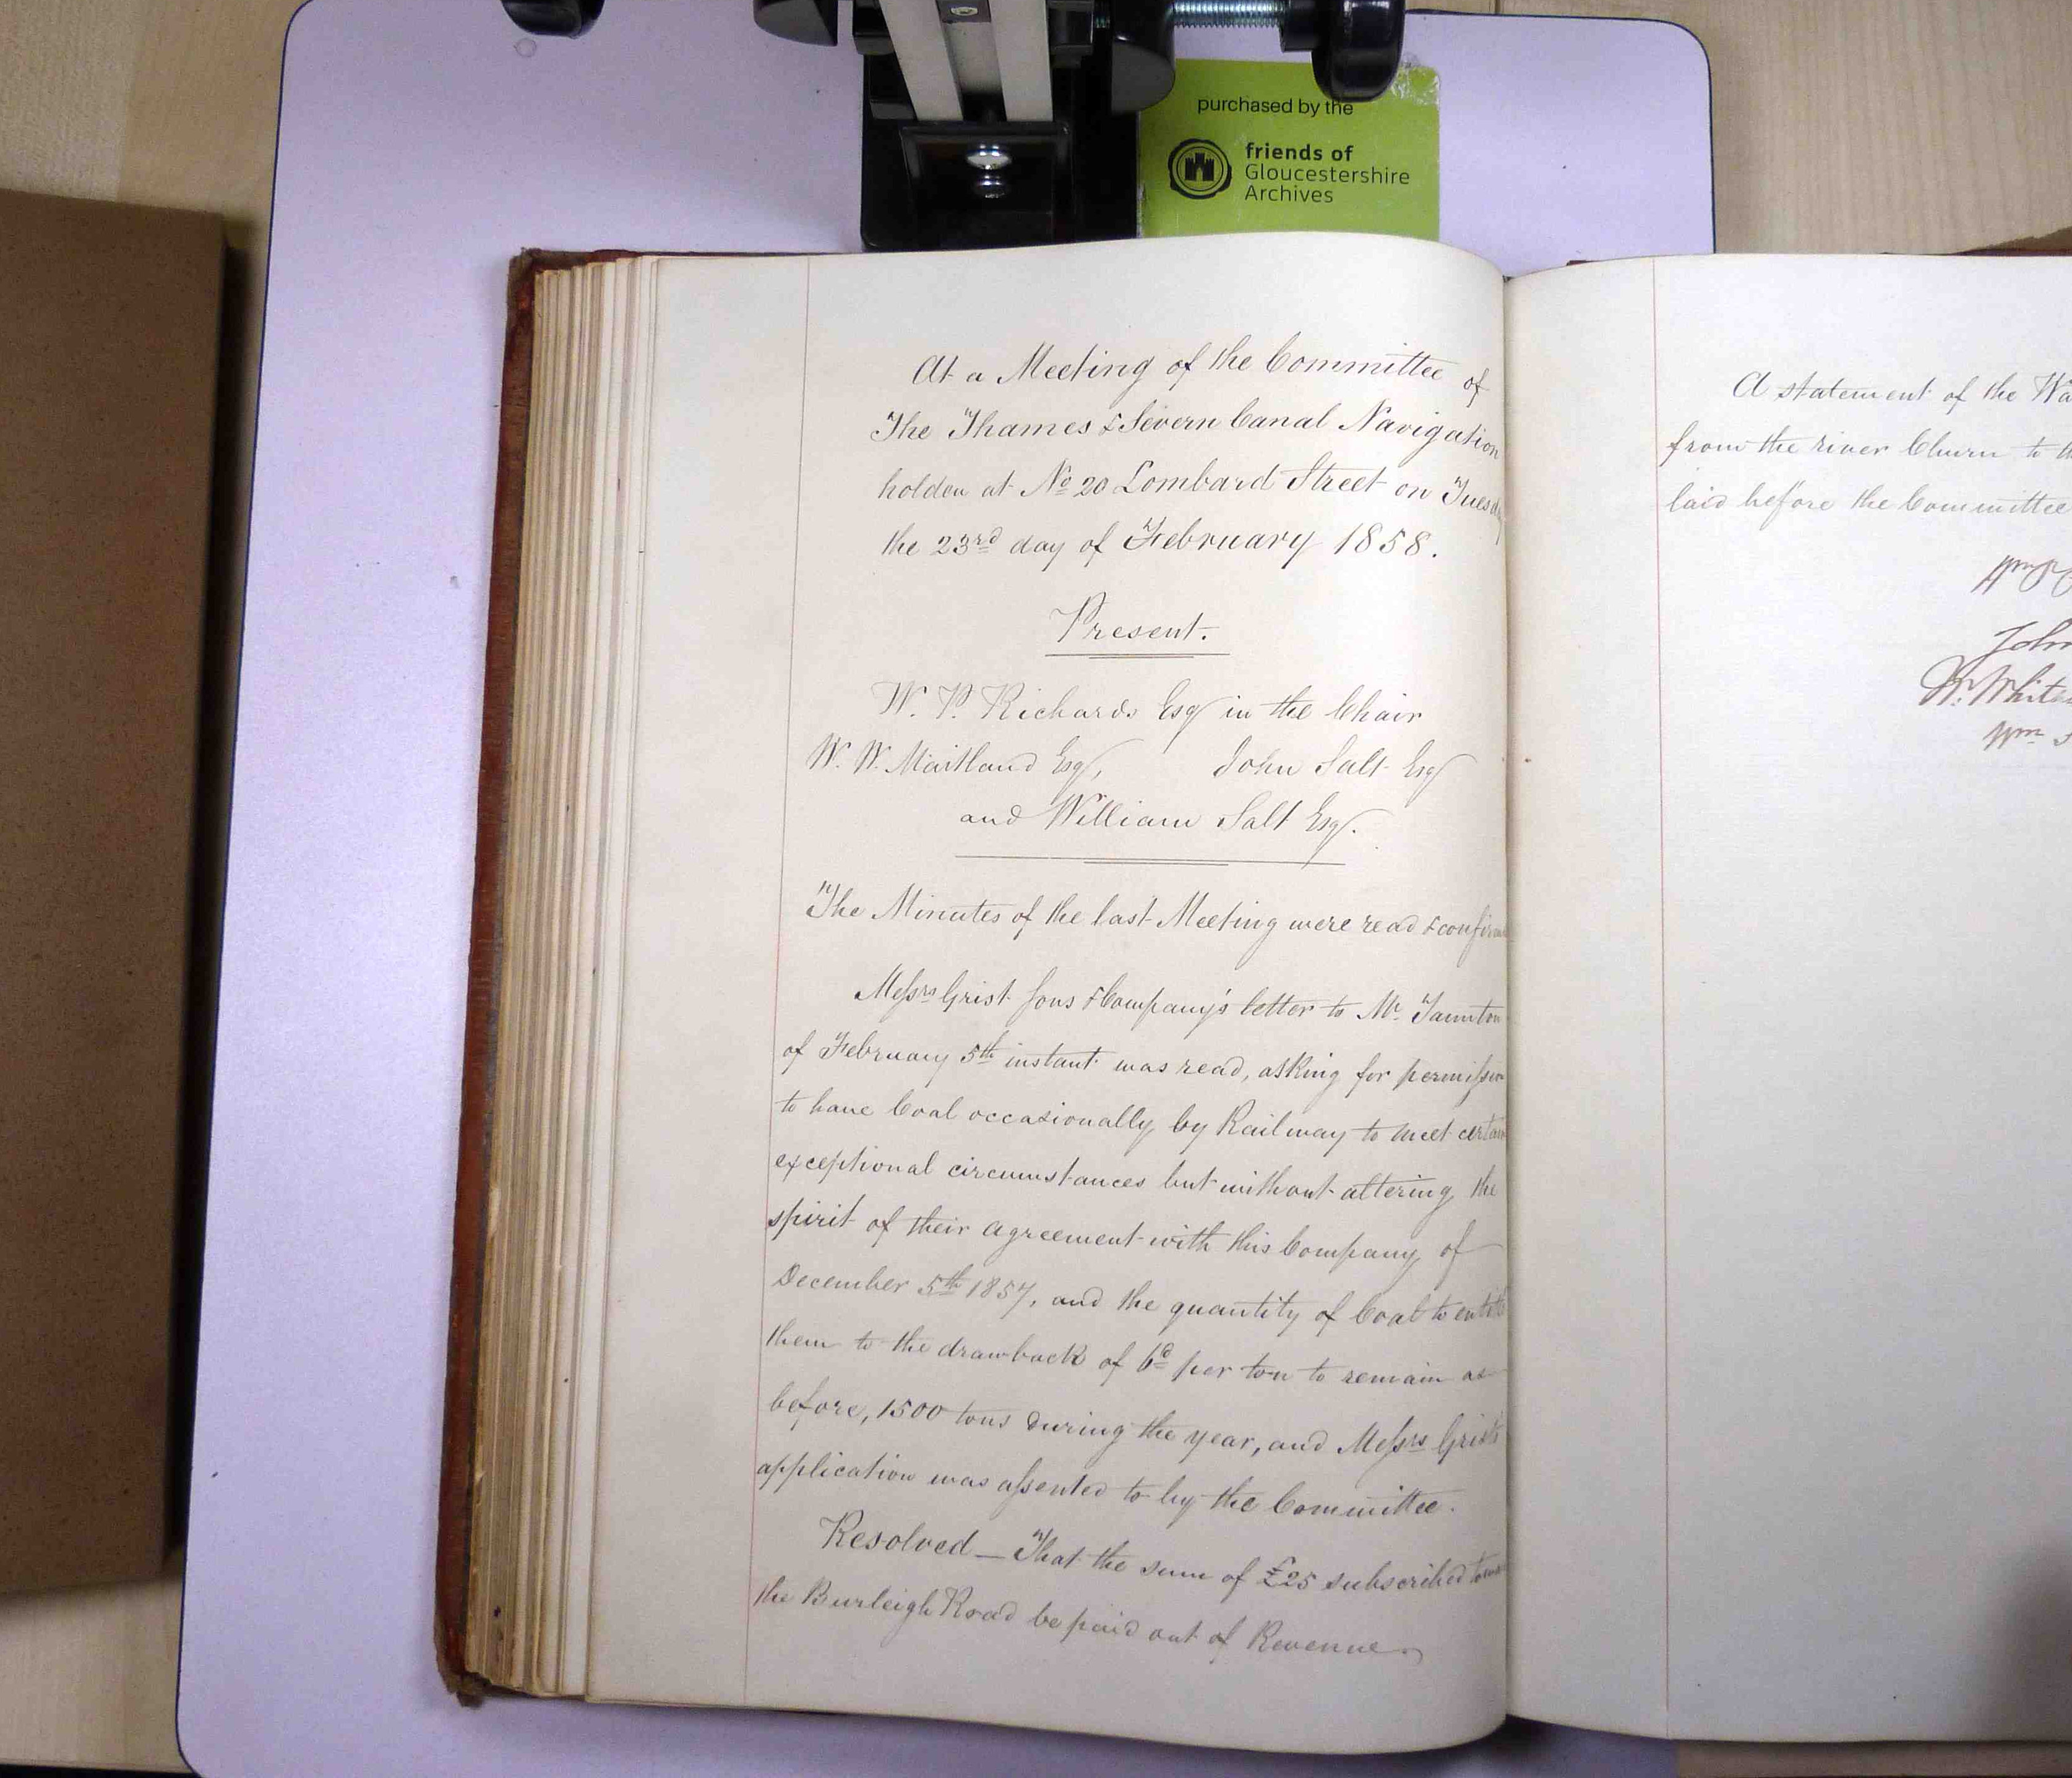 purchased by the
friends of
Gloucestershire
Archives
At a Meeting of the Committee of
The Thames & Severn Canal Navigation
holden at No 20 Lombard Street on Tuesday
the 23rd day of February 1858.
Present.
W. P. Richards Esq in the Chair
W. W. Maitland Esq, John Salt Esq
and William Salt Esq.
The Minutes of the last Meeting were read & confirm
Messrs Grist Sons & Company's letter to Mr. Taunton
of February 5th instant was read, asking for permission
to have Coal occasionally by Railway to meet certain
exceptional circumstances but without altering the
spirit of their agreement with this Company of
December 5th 1857, and the quantity of Coal to entitle
them to the drawback of 6d per ton to remain as
before, 1500 tons during the year, and Messrs Grist's
application was assented to by the Committee.
Resolved — That the sum of £25 subscribed
the Burleigh Road be paid out of Revenue.
A statement of the
from the river Churn to
laid before the Committee
John
W. White
Wm